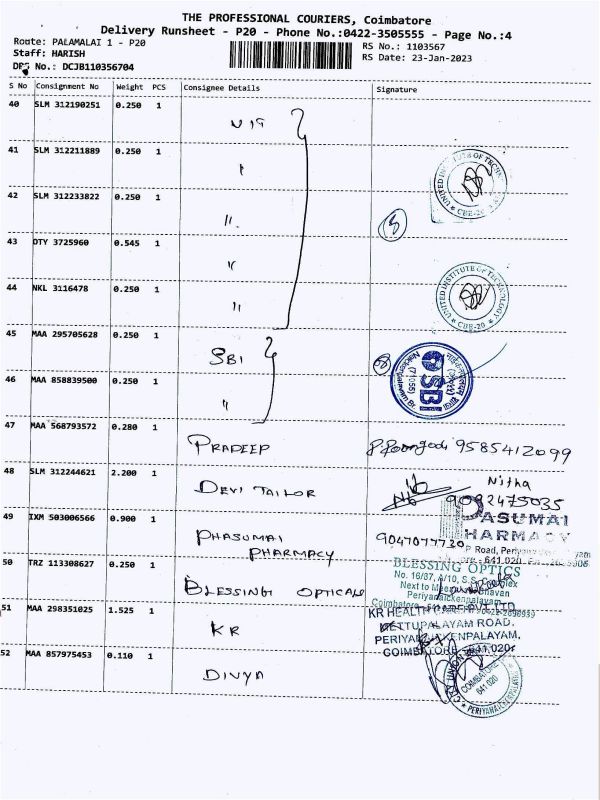 THE PROFESSIONAL COURIERS, Coimbatore
Delivery Runsheet - P20 - Phone No.:0422-3505555 - Page No.:4
Route: PALAMALAI 1 - P20
Staff: HARISH
DRS No.: DCJB110356704
RS No.: 1103567
RS Date: 23-Jan-2023
S No Consignment No Weight PCS Consignee Details Signature
40 SLM 312190251 0.250 1
41 SLM 312211889 0.250 1 "
UNITED INSTITUTE OF TECHNOLOGY * CBE-20 *
42 SLM 312233822 0.250 1 "
43 DTY 3725960 0.545 1 "
44 NKL 3116478 0.250 1 "
UNITED INSTITUTE OF TECHNOLOGY * CBE-20 *
45 MAA 295705628 0.250 1 SBI
SB
46 MAA 858839500 0.250 1 "
47 MAA 568793572 0.280 1 PRADEEP P. Poongodi 9585412099
48 SLM 312244621 2.200 1 DEVI TAILOR Nitha
49 IXM 503006566 0.900 1 PHASUMAI PHARMACY
PASUMAI
PHARMACY
50 TRZ 113308627 0.250 1 BLESSING OPTICALS
BLESSING OPTICS
No. 16/87, A/10, S.S. Complex
Periyanaickenpalayam
51 MAA 298351025 1.525 1 KR
METTUPALAYAM ROAD.
PERIYANAICKENPALAYAM,
COIMBATORE - 641 020.
52 MAA 857975453 0.110 1 DIVYA
COIMBATORE
641 020